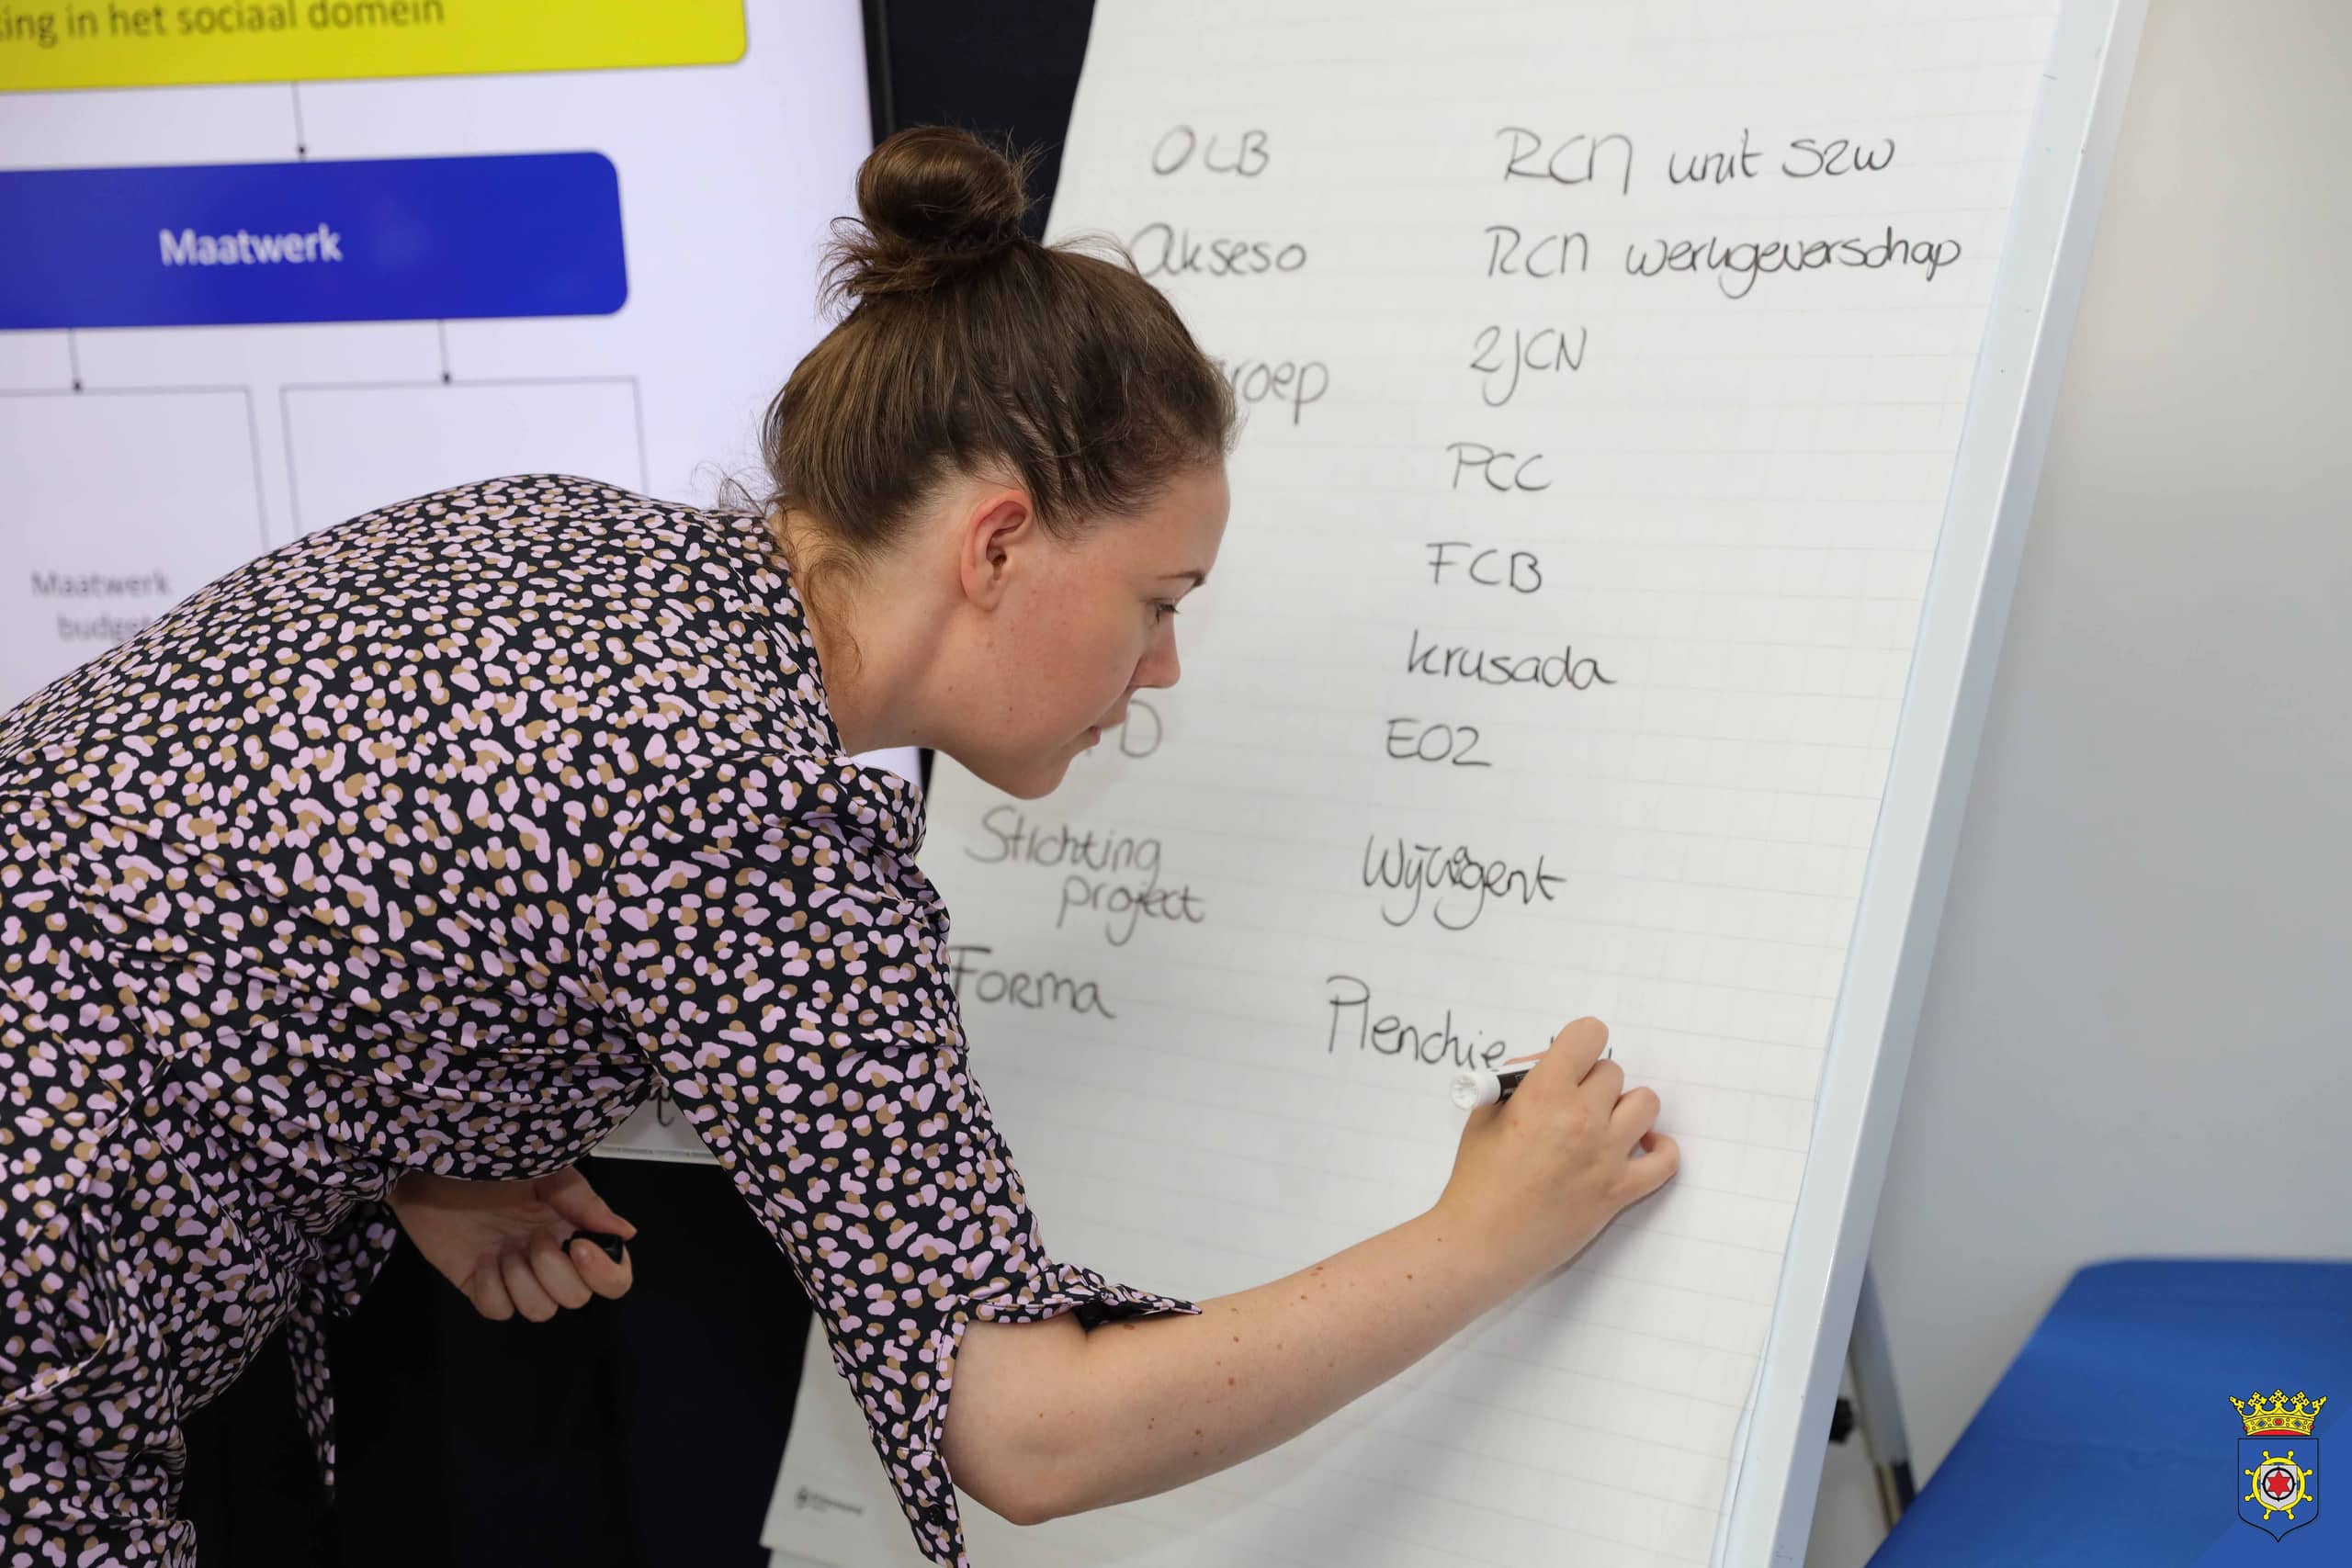 ing in het sociaal domein
Maatwerk
Maatwerk
budget
OLB
Akseso
roep
D
Stichting
project
Forma
RCN unit SZW
RCN werkgeverschap
ZJCN
PCC
FCB
krusada
EOZ
Wijkagent
Plenchie